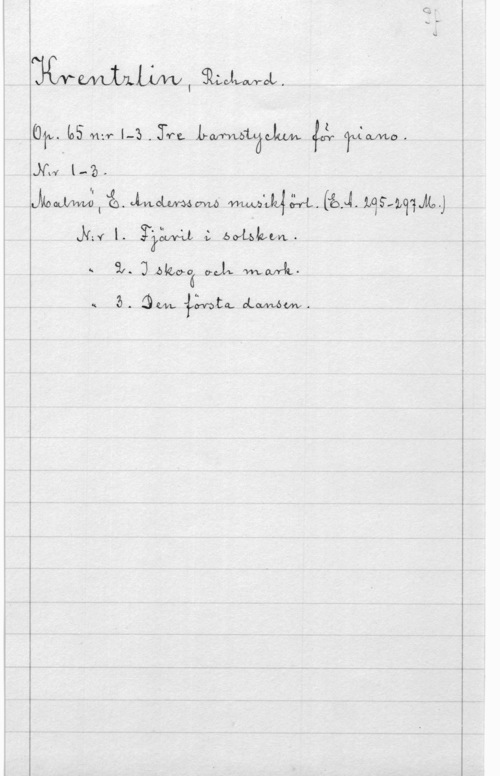 Krentzlin, Richard.
Op. 65 n:r 1-3. Tre barnstycken för piano.
N:r 1-3.
Malmö, E. Anderssons musikförl. (E.A. 295-297 M.)
N:r 1. Fjäril i solsken.
" 2. I skog och mark.
" 3. Den första dansen.